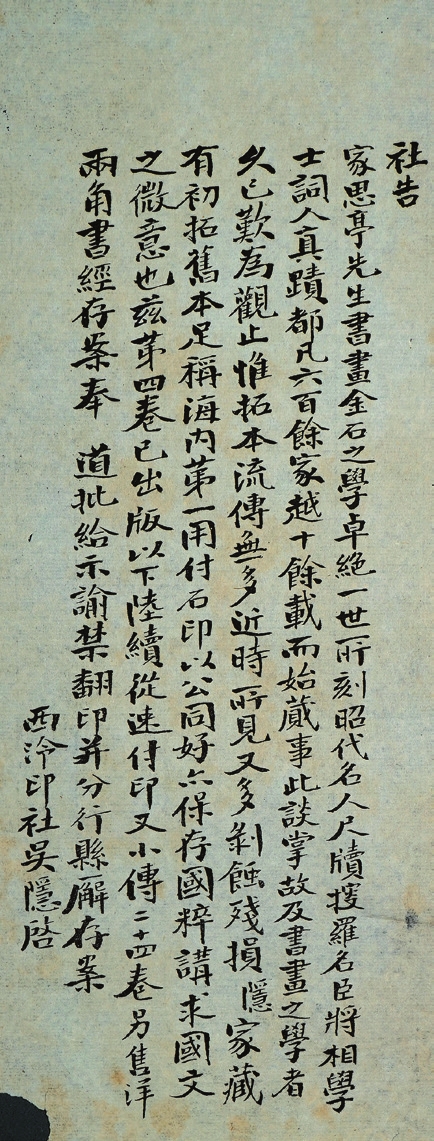 社告
家思亭先生書畫金石之學卓絕一世所刻昭代名人尺牘搜羅名臣將相學
士詞人真蹟都凡六百餘家越十餘載而始蕆事此談掌故及書畫之學者
久已歎為觀止惟拓本流傳無多近時所見又多剝蝕殘損隱家藏
有初拓舊本足稱海內第一用付石印以公同好亦保存國粹講求國文
之微意也茲第四卷已出版以下陸續從速付印又小傳二十四卷另售洋
兩角書經存案奉 道批給示諭禁翻印并分行縣廨存案
西泠印社吳隱啓